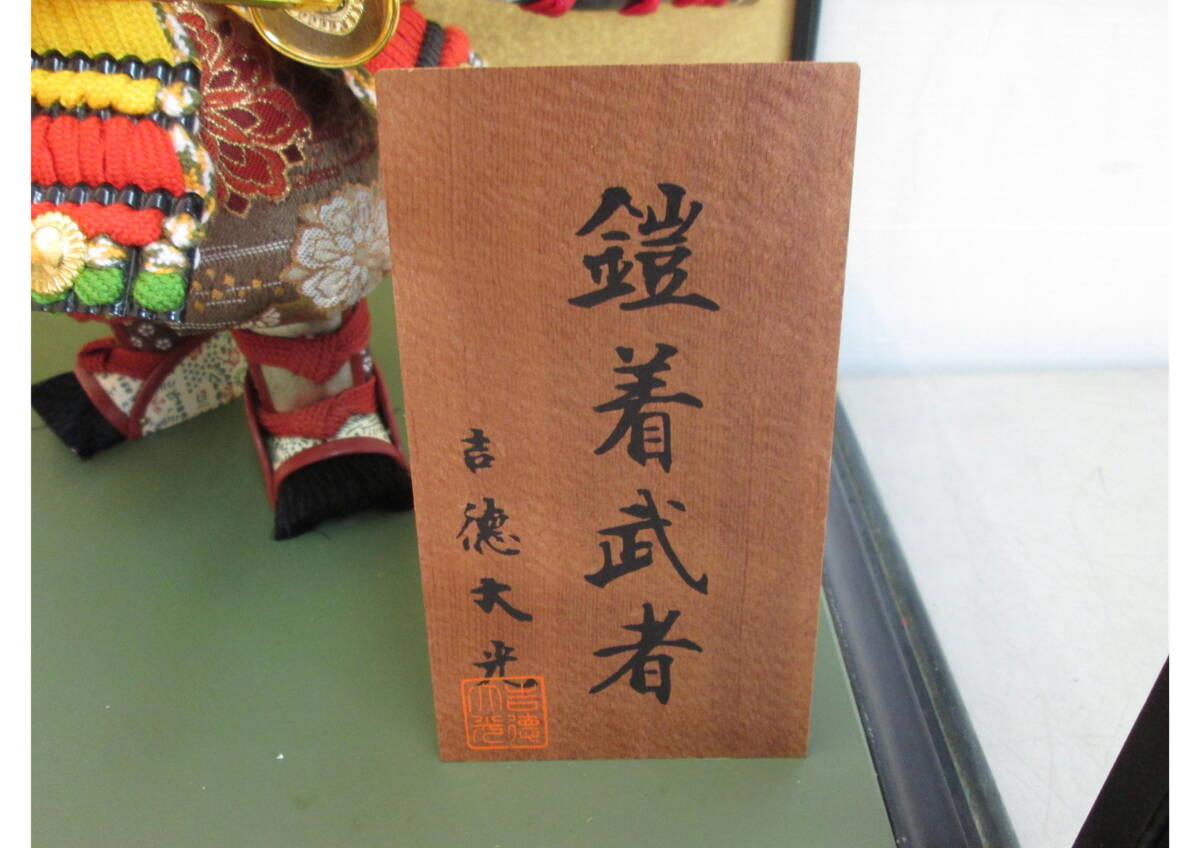 鎧着武者
吉德大光
吉德
大光